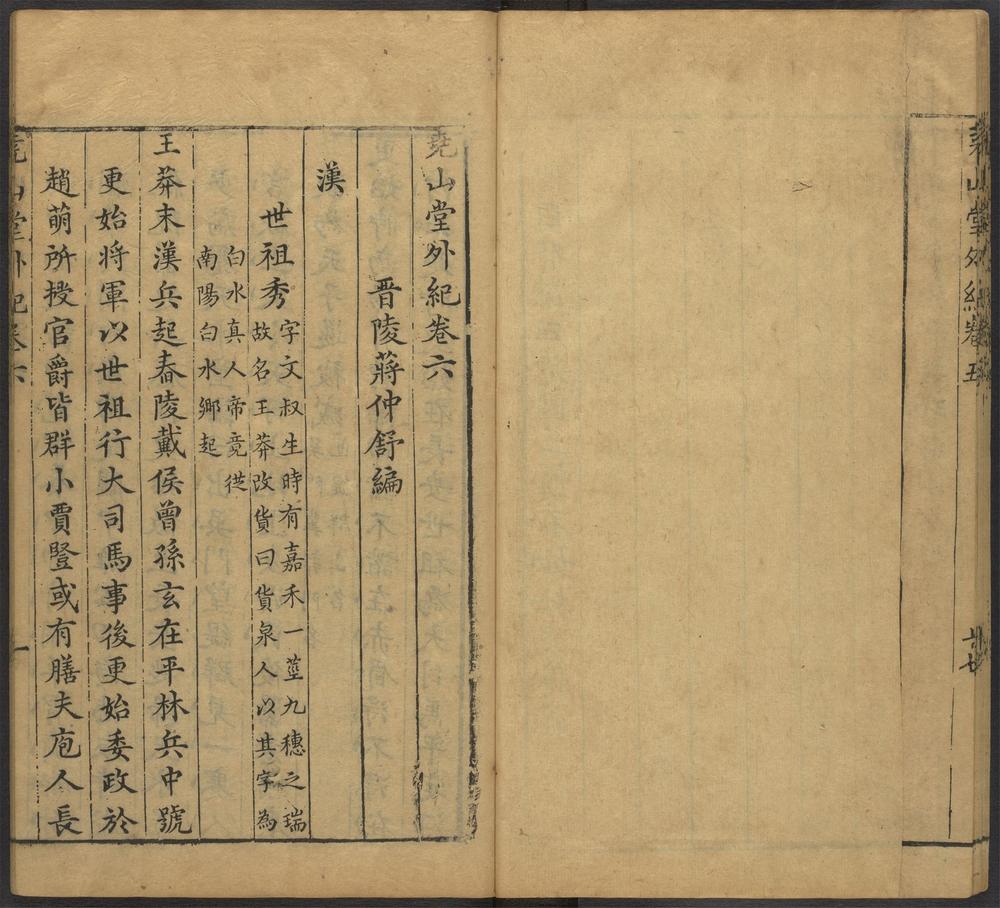 堯山堂外紀卷五
廿七
堯山堂外紀卷六
晋陵蔣仲舒編
漢
世祖秀
字文叔生時有嘉禾一莖九穗之瑞
故名王莽改貨曰貨泉人以其字為
白水真人帝竟從
南陽白水鄉起
王莽末漢兵起舂陵戴侯曾孫玄在平林兵中號
更始將軍以世祖行大司馬事後更始委政於
趙萌所授官爵皆群小賈豎或有膳夫庖人長
堯山堂外紀卷六
一